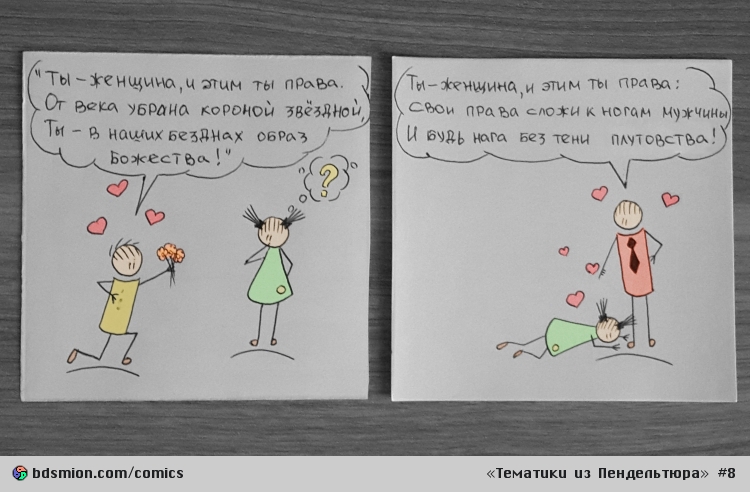 "Ты-женщина, и этим ты права.
От века убрана короной звёздной,
Ты - в наших безднах образ
Божества!"
?
Ты-женщина, и этим ты права:
Свои права сложи к ногам мужчины
И будь нага без тени плутовства!
bdsmion.com/comics
«Тематики из Пендельтюра» #8